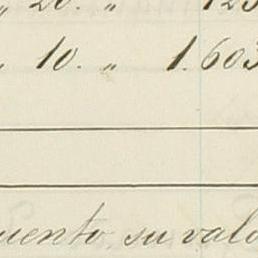 " 20. " 123
" 10. " 1.603
uento, su valo